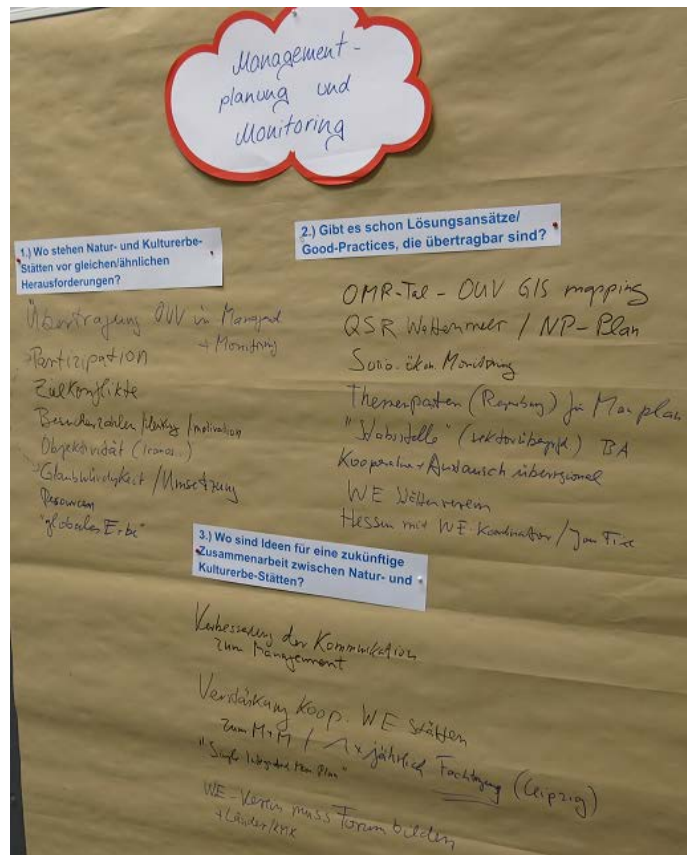 Management-
planung und
Monitoring
1.) Wo stehen Natur- und Kulturerbe-
Stätten vor gleichen/ähnlichen
Herausforderungen?
Übertragung OUV in Managmt
+ Monitoring
Partizipation
Zielkonflikte
Besucherzahlen/lenkung/motivation
Objektivität (Icomos..)
Glaubwürdigkeit/Umsetzung
Resourcen
"globales Erbe"
2.) Gibt es schon Lösungsansätze/
Good-Practices, die übertragbar sind?
OMR-Tal - OUV GIS mapping
QSR Wattenmeer / NP-Plan
Sozio-ökon. Monitoring
Themenpaten (Regensburg) für Man plan
"Stabsstelle" (sektorübergrf.) BA
Kooperation + Austausch überregional
WE Stättenverein
Hessen mit WE-Koordination/Jour Fixe
3.) Wo sind Ideen für eine zukünftige
Zusammenarbeit zwischen Natur- und
Kulturerbe-Stätten?
Verbesserung der Kommunikation
zum Management
Verstärkung Koop. WE Stätten
zum M+M / 1x jährlich Fachtagung (Leipzig)
"Single Integrated Man Plan"
WE-Verein muss Forum bilden
+Länder/KMK